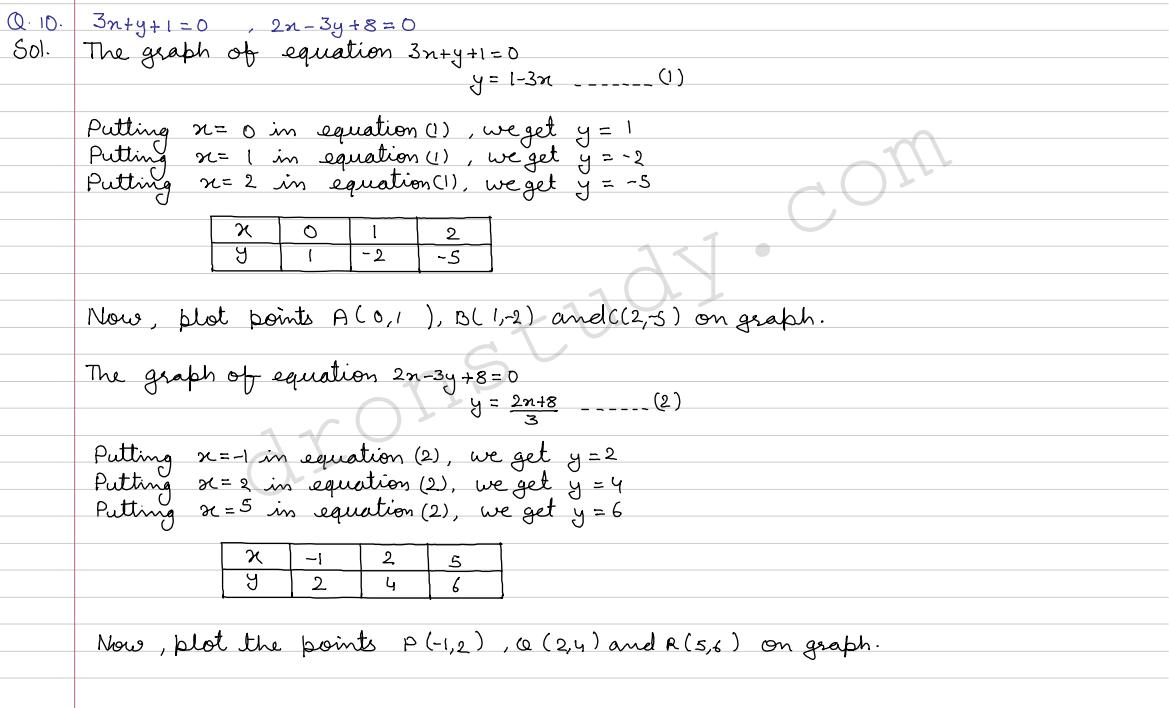 Q.10. 3x+y+1=0 , 2x-3y+8=0
Sol. The graph of equation 3x+y+1=0
y = 1-3x ------- (1)
Putting x= 0 in equation (1) , we get y = 1
Putting x= 1 in equation (1) , we get y = -2
Putting x= 2 in equation (1), we get y = -5
x 0 1 2
y 1 -2 -5
Now, plot points A(0,1), B(1,-2) and C(2,-5) on graph.
The graph of equation 2x-3y+8=0
y = (2x+8)/3 ------ (2)
Putting x=-1 in equation (2), we get y=2
Putting x=2 in equation (2), we get y=4
Putting x=5 in equation (2), we get y=6
x -1 2 5
y 2 4 6
Now, plot the points P(-1,2), Q(2,4) and R(5,6) on graph.
dronstudy.com